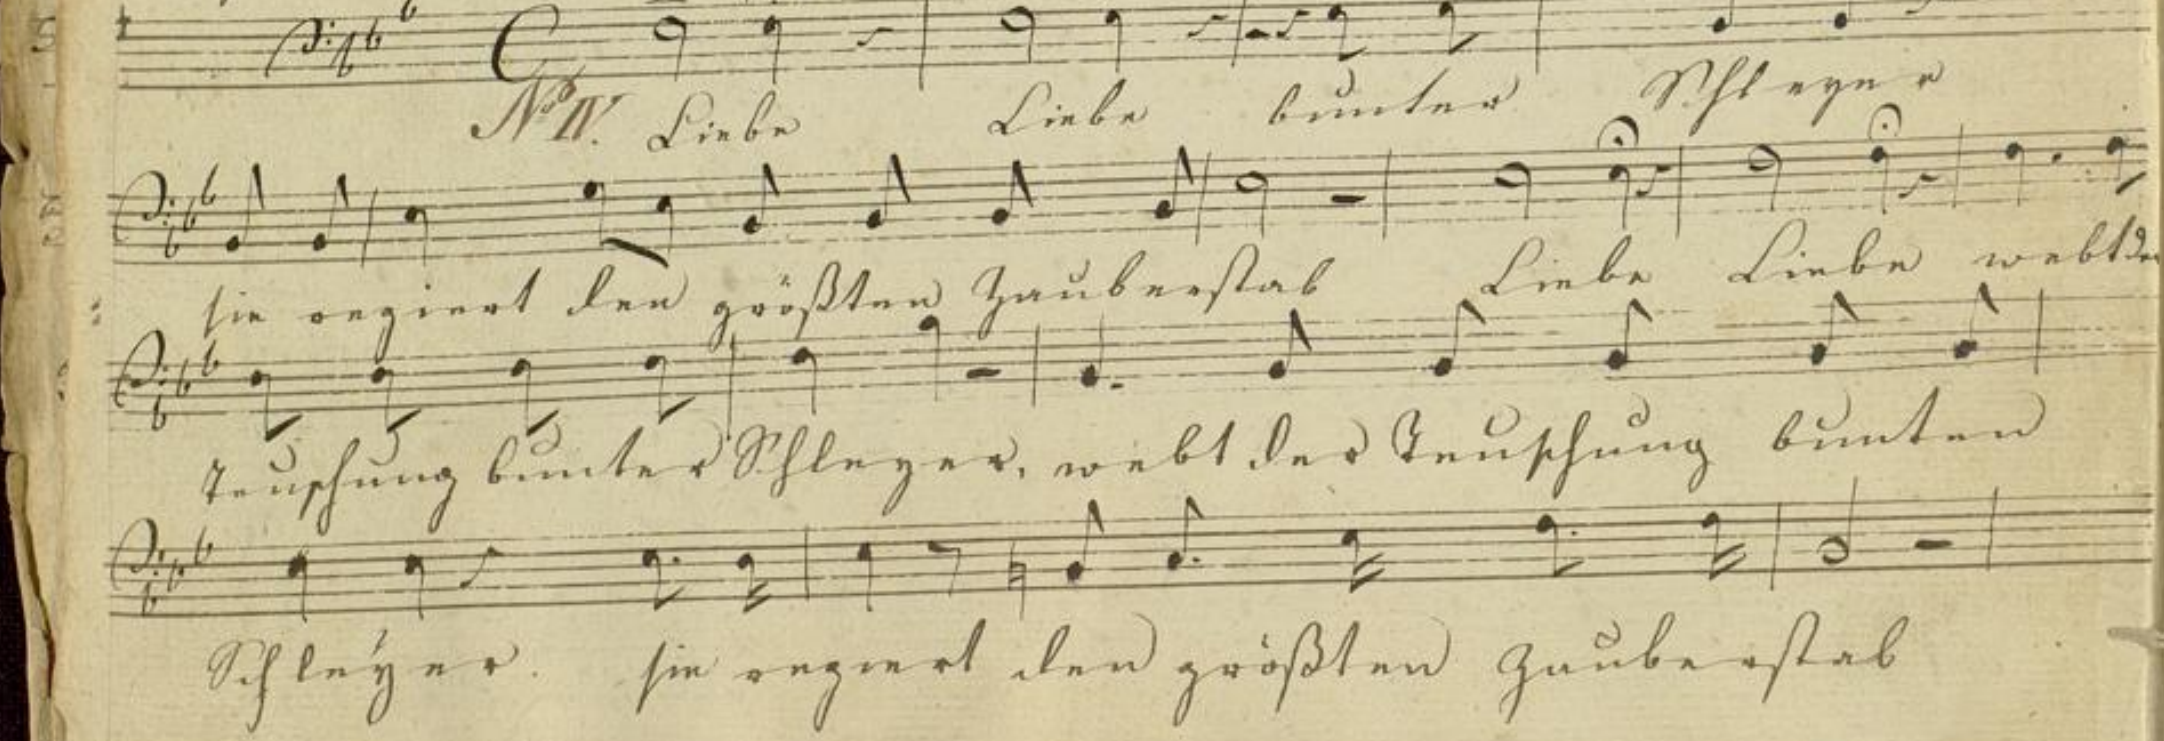 No IV. Liebe Liebe bunter Schleyer
sie regiert den größten Zauberstab Liebe Liebe webt der
Teuschung bunter Schleyer, webt der Teuschung bunten
Schleyer. sie regiert den größten Zauberstab